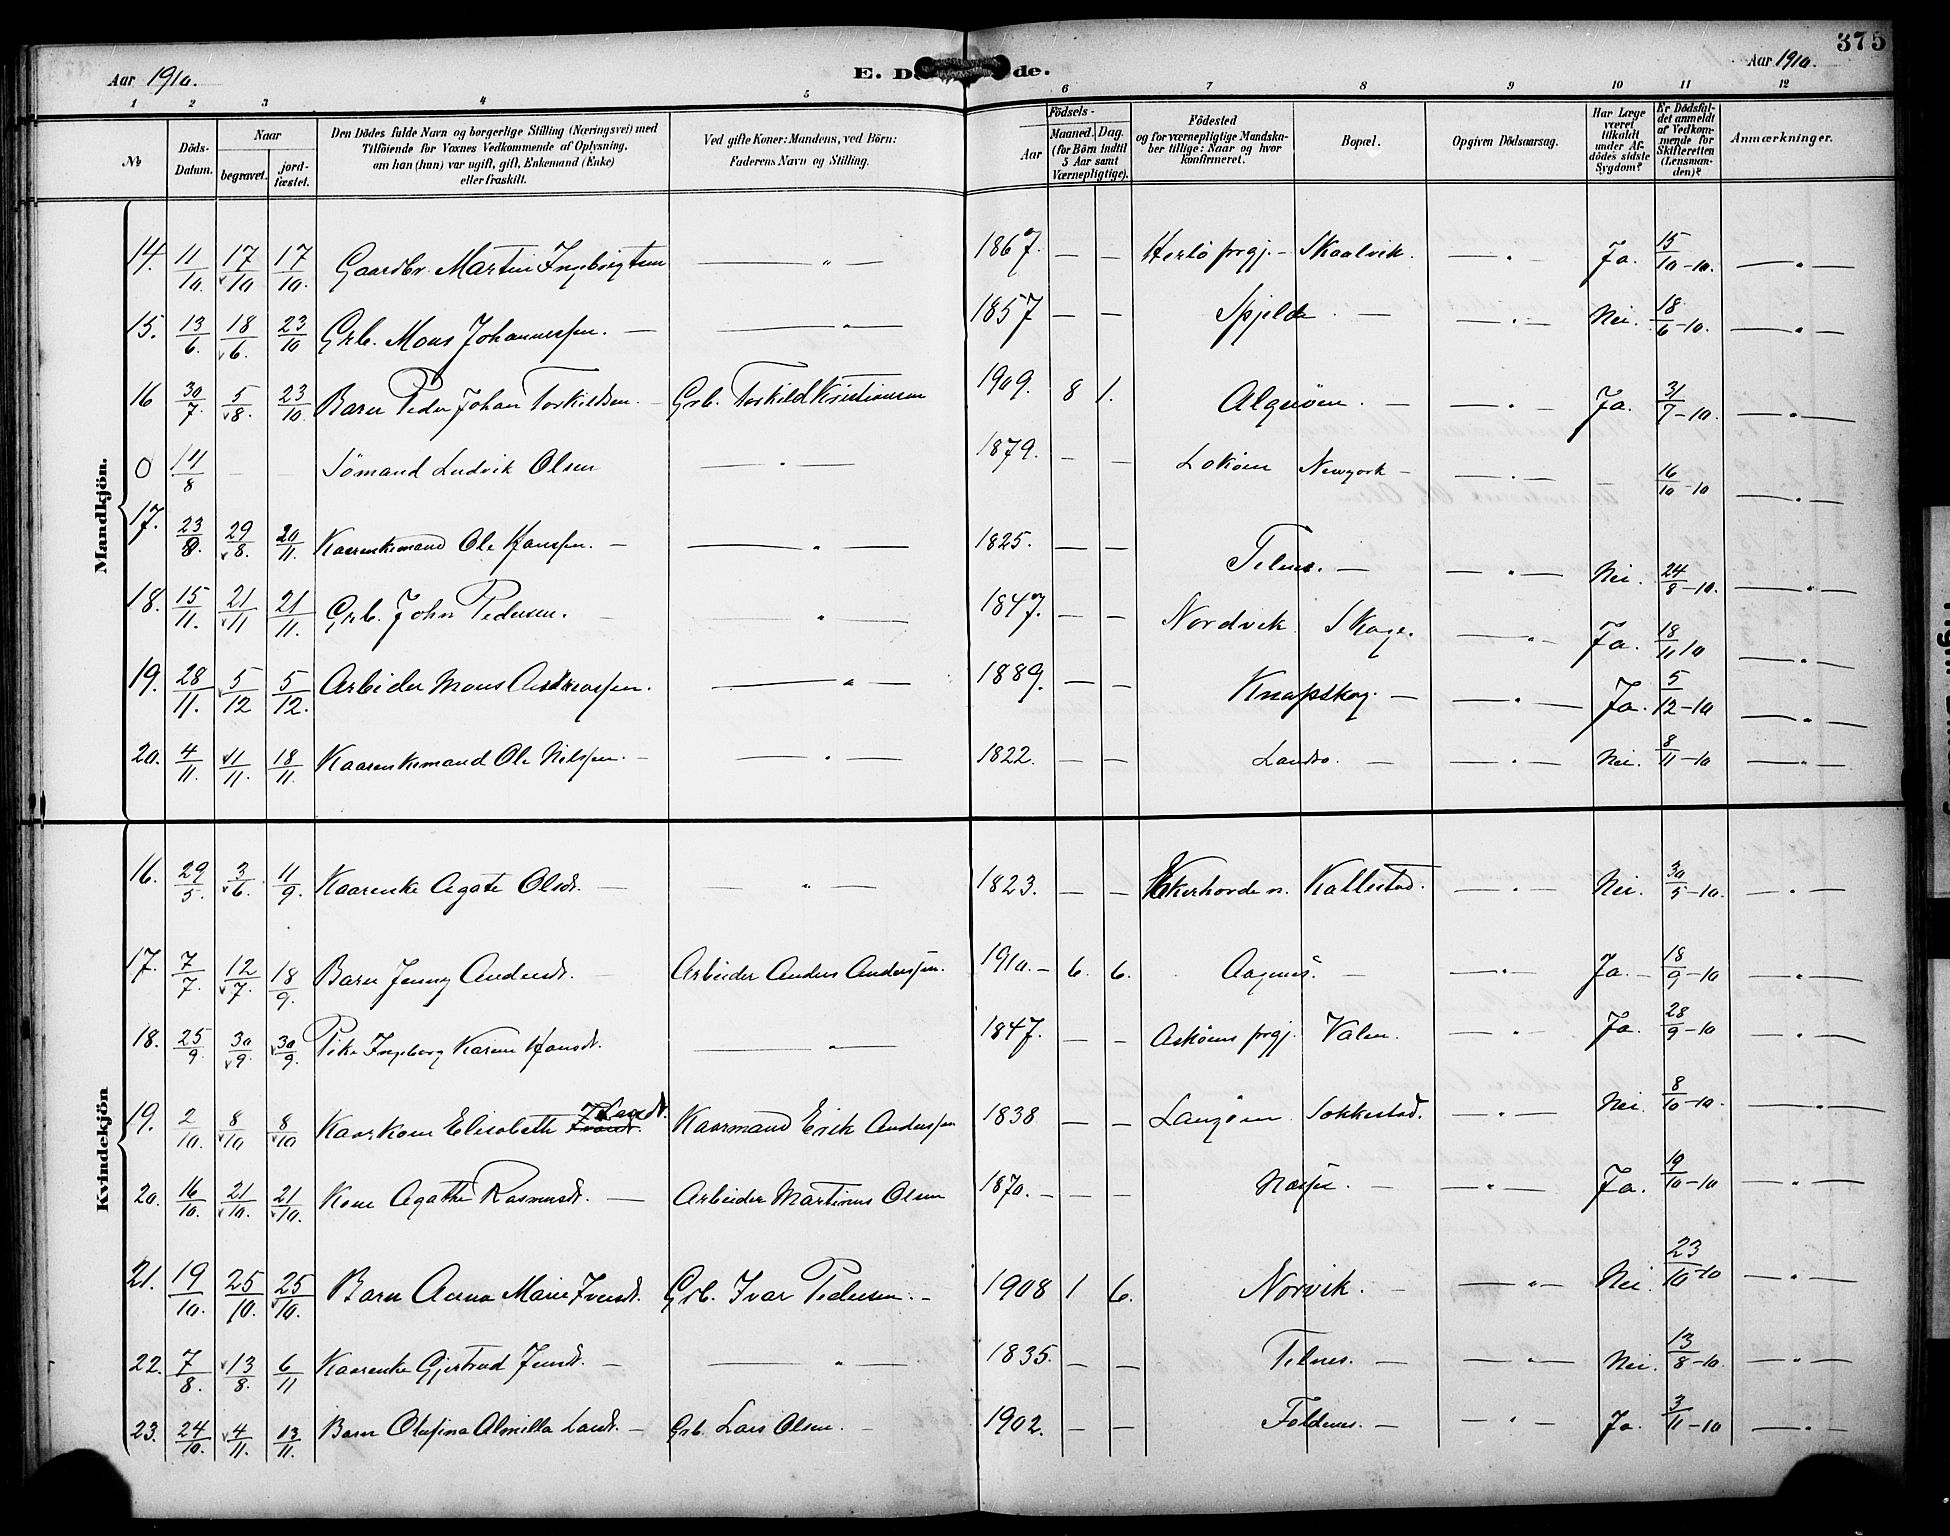 375
Aar 1910.
E. D de.
Aar 1910.
1 2 3 4 5 6 7 8 9 10 11 12
No
Döds-Datum.
Naar
begravet.
jord-fæstet.
Den Dödes fulde Navn og borgerlige Stilling (Næringsvei) med
Tilföiende for Voxnes Vedkommende af Oplysning,
om han (hun) var ugift, gift, Enkemand (Enke)
eller fraskilt.
Ved gifte Koner: Mandens, ved Börn:
Faderens Navn og Stilling.
Födsels-
Aar
Maaned. Dag.
(for Börn indtil
5 Aar samt
Værnepligtige).
Födested
og for værnepligtige Mandska-
ber tillige: Naar og hvor
konfirmeret.
Bopæl.
Opgiven Dödsaarsag.
Har Læge
været
tilkaldt
under Af-
dödes sidste
Sygdom?
Er Dödsfal-
det anmeldt
af Vedkom-
mende for
Skifteretten
(Lensman-
den)?
Anmærkninger.
Mandkjön.
14. 11/10. 17/10 17/10. Gaardbr. Martin Ingebrigtsen — " — 1867. — — Herlö prgj. — Skaalvik. — " — Ja. 15/10-10. — " —
15. 13/6. 18/6. 23/10 Grb. Mons Johannessen. — — " — 1857 — — Spjelde. — — " — Nei. 18/6-10. — " —
16 30/7. 5/8. 23/10. Barn Peder Johan Torkildsen. — Grb. Torkild Kristiansen 1909. 8 1. Algeröen. — — " — Ja. 31/7-10. — " —
0 14/8 — — Sömand Ludvik Olsen — " — 1879. — — Loköen Newyork — — " — — 16/10-10 — " —
17. 23/8. 29/8. 20/11. Kaarenkemand Ole Hanssen. — — " — 1825. — — Telnes. — — " — Nei. 24/8-10. — " —
18. 15/11. 21/11 21/11. Grb. John Pedersen. — — " — 1847. — — Nordvik Skoge. — " — Ja. 18/11 10 — " —
19. 28/11. 5/12 5/12. Arbeider Mons Andreassen. — " — 1889. — — Knapskog. — — " — Ja. 5/12-10 — " —
20. 4/11. 11/11. 18/11. Kaarenkemand Ole Nilssen. — — " — 1822. — — Landro. — — " — Nei. 8/11-10 — " —
Kvindekjön
16. 29/5. 3/6. 11/9. Kaarenke Agate Olsdt. — — " — 1823. — — Ekerhovde n. Kallestad. — " — Nei. 30/5-10. — " —
17. 7/7. 12/7. 18/9. Barn Jenny Andersdt. — Arbeider Anders Anderssen. 1910. — 6. 6. Aagnes. — — " — Ja. — 18/9-10 — " —
18. 25/9. 30/9. 30/9. Pike Ingeborg Karine Hansdt. — " — 1847. — — Asköens prgj. Valen. — " — Ja. 28/9-10 — " —
19. 2/10. 8/10 8/10 Kaarkone Elisabeth Kaarmand Erik Anderssen 1838 — — Langöen Sokkestad. — " — Nei. 8/10-10. — " —
20. 16/10. 21/10. 21/10. Kone Agathe Rasmusdt. — Arbeider Martinus Olsen 1870. — — — Næsse. — — " — Ja. 19/10-10 — " —
21. 19/10. 25/10. 25/10. Barn Anna Marie Iversdt. Grb. Ivar Pedersen. — 1908 1 6. Norvik. — — " — Nei. 23/10-10 — " —
22. 7/8. 13/8. 6/11 Kaarenke Gjertrud Jensdt. — — " — 1835. — — Telnes. — — " — Nei. 13/8-10. — " —
23. 24/10. 4/11. 13/11. Barn Olufina Almilla Larsdt. — Grb. Lars Olsen. — 1902. — — Foldnes. — — " — Ja. 3/11-10 — " —